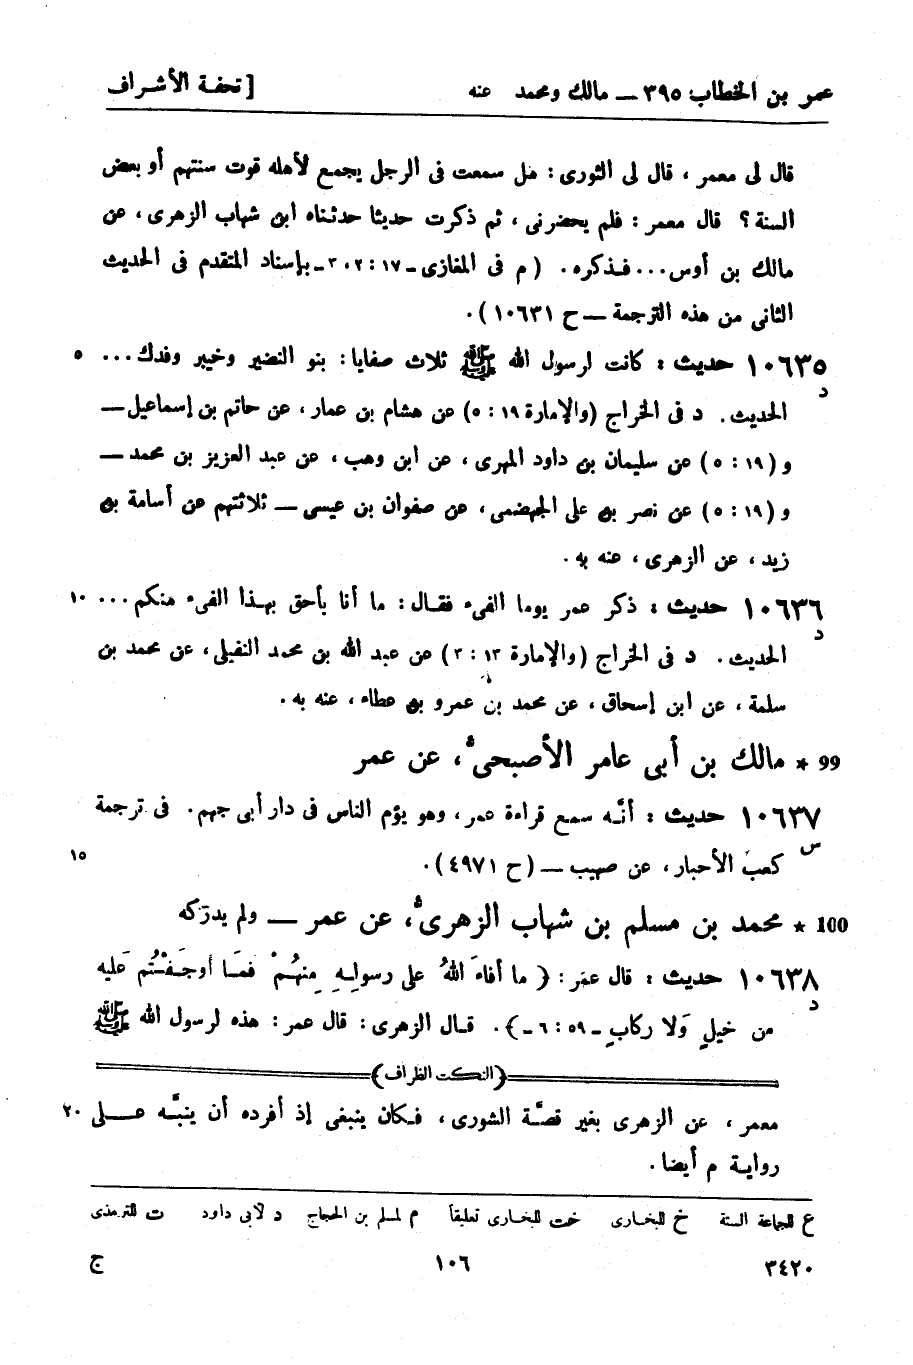 عمر بن الخطاب: ٣٩٥ — مالك ومحمد عنه [ تحفة الأشراف
قال لى معمر ، قال لى الثورى : هل سمعت فى الرجل يجمع لأهله قوت سنتهم أو بعض
السنة ؟ قال معمر : فلم يحضرنى ، ثم ذكرت حديثا حدثناه ابن شهاب الزهرى ، عن
مالك بن أوس . . . فـذكره . ( م فى المغازى ـ ١٧ : ٢ ، ٣ ـ بإسناد المتقدم فى الحديث
الثانى من هذه الترجمة — ح ١٠٦٣١ ) .
١٠٦٣٥ حديث : كانت لرسول الله ﷺ ثلاث صفايا : بنو النضير وخيبر وفدك . . . ٥
د
الحديث . د فى الخراج (والإمارة ١٩ : ٥) عن هشام بن عمار ، عن حاتم بن إسماعيل —
و (١٩ : ٥) عن سليمان بن داود المهرى ، عن ابن وهب ، عن عبد العزيز بن محمد —
و (١٩ : ٥) عن نصر بن على الجهضمى ، عن صفوان بن عيسى — ثلاثتهم عن أسامة بن
زيد ، عن الزهرى ، عنه به .
١٠٦٣٦ حديث : ذكر عمر يوما الفىء فقـال : ما أنا بأحق بهـذا الفىء منكم . . . ١٠
د
الحديث . د فى الخراج (والإمارة ١٣ : ٣) عن عبد الله بن محمد النفيلى ، عن محمد بن
سلمة ، عن ابن إسحاق ، عن محمد بن عمرو بن عطاء ، عنه به .
99 * مالك بن أبى عامر الأصبحىُّ ، عن عمر
١٠٦٣٧ حديث : أنَّـه سمـع قراءة عمر ، وهو يؤم الناس فى دار أبى جهم . فى ترجمة
س
كعب الأحبار ، عن صهيب — (ح ٤٩٧١) . ١٥
100 * محمد بن مسلم بن شهاب الزهرىُّ ، عن عمر — ولم يدرَكه
١٠٦٣٨ حديث : قال عمر : ﴿ ما أفاءَ اللهُ على رسولِـهِ مِنهُـمْ فمَـا أوجَـفْـتُم عَليه
د
من خيلٍ وَلا ركابٍ ـ ٥٩ : ٦ ـ ﴾ . قـال الزهرى : قال عمر : هذه لرسول الله ﷺ
(النكت الظراف)
معمر ، عن الزهرى بغير قصَّـة الشورى ، فـكان ينبغى إذ أفرده أن ينبِّـه عـــلى ٢٠
روايـة م أيضا .
ع للجماعة الستة خ للبخارى خت للبخارى تعليقاً م لمسلم بن الحجاج د لأبى داود ت للترمذى
٣٤٢٠ ١٠٦ ج